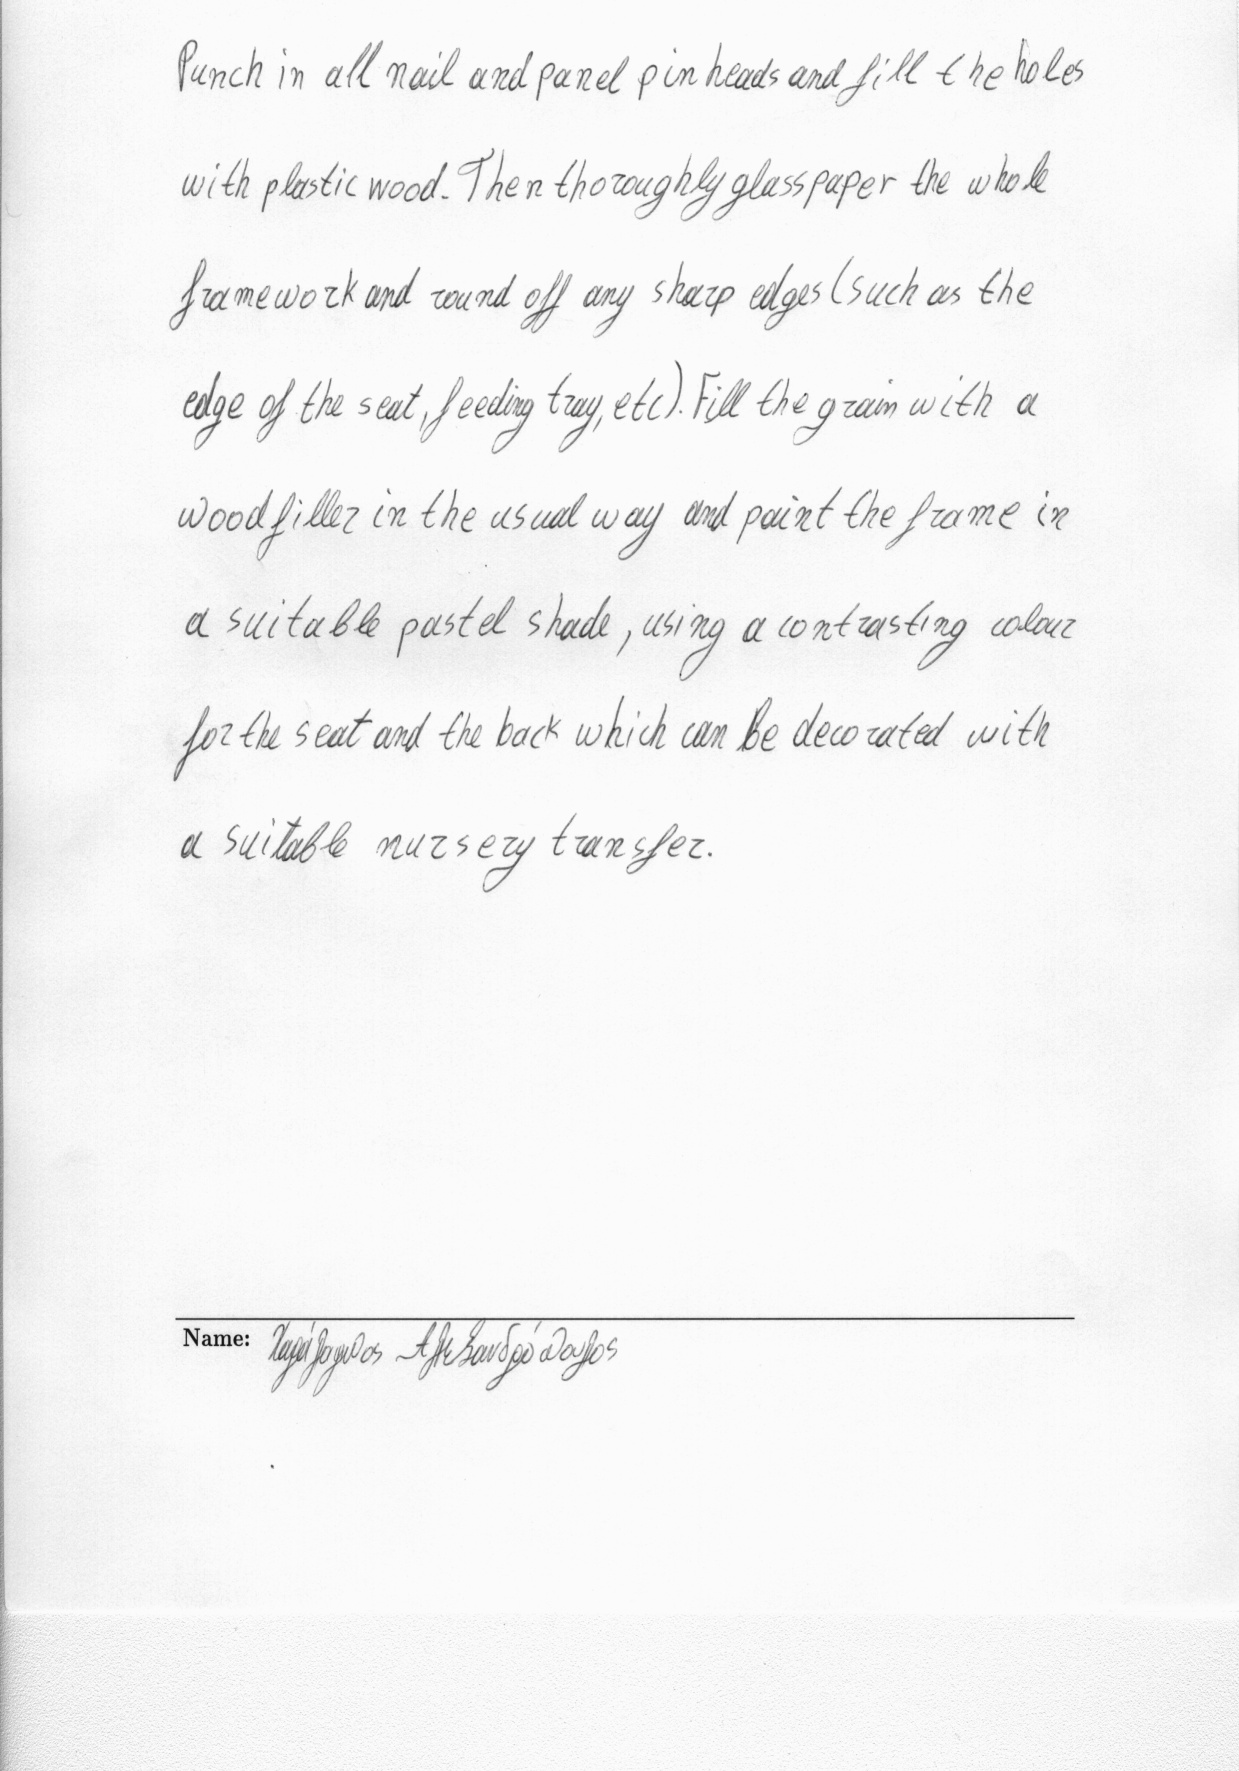 Punch in all nail and panel pin heads and fill the holes
with plastic wood. Then thoroughly glasspaper the whole
framework and round off any sharp edges (such as the
edge of the seat, feeding tray, etc). Fill the grain with a
woodfiller in the usual way and paint the frame in
a suitable pastel shade, using a contrasting colour
for the seat and the back which can be decorated with
a suitable nursery transfer.
Name: Χαράλαμπος Αλεξανδρόπουλος